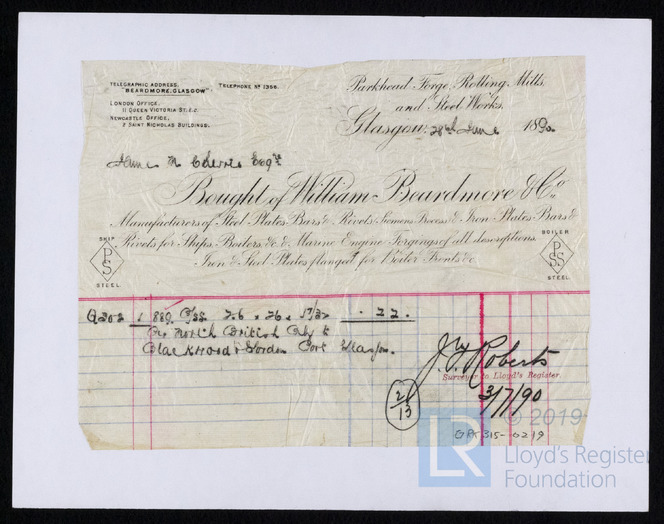 TELEGRAPHIC ADDRESS,
"BEARDMORE, GLASGOW".
TELEPHONE Nº 1356.
LONDON OFFICE,
11 QUEEN VICTORIA ST. E.C.
NEWCASTLE OFFICE,
2 SAINT NICHOLAS BUILDINGS.
Parkhead Forge, Rolling Mills,
and Steel Works,
Glasgow, 28th June 1890
James M Esqre
Bought of William Beardmore & Co.,
Manufacturers of Steel Plates Bars & Rivets Siemens Process & Iron Plates Bars &
Rivets for Ships, Boilers, &c. & Marine Engine Forgings of all descriptions.
Iron & Steel Plates flanged for Boiler Fronts &c.
SHIP
PSS
STEEL.
BOILER
PSS
STEEL.
1 889 2.6 x 26 x 17/32 . 22 .
Per North British Rly to
Blackwood & Gordon Port Glasgow.
J. Roberts
Surveyor to Lloyd's Register.
3/7/90
2/13
GPK315-0219
© 2019
LR
Lloyd's Register
Foundation